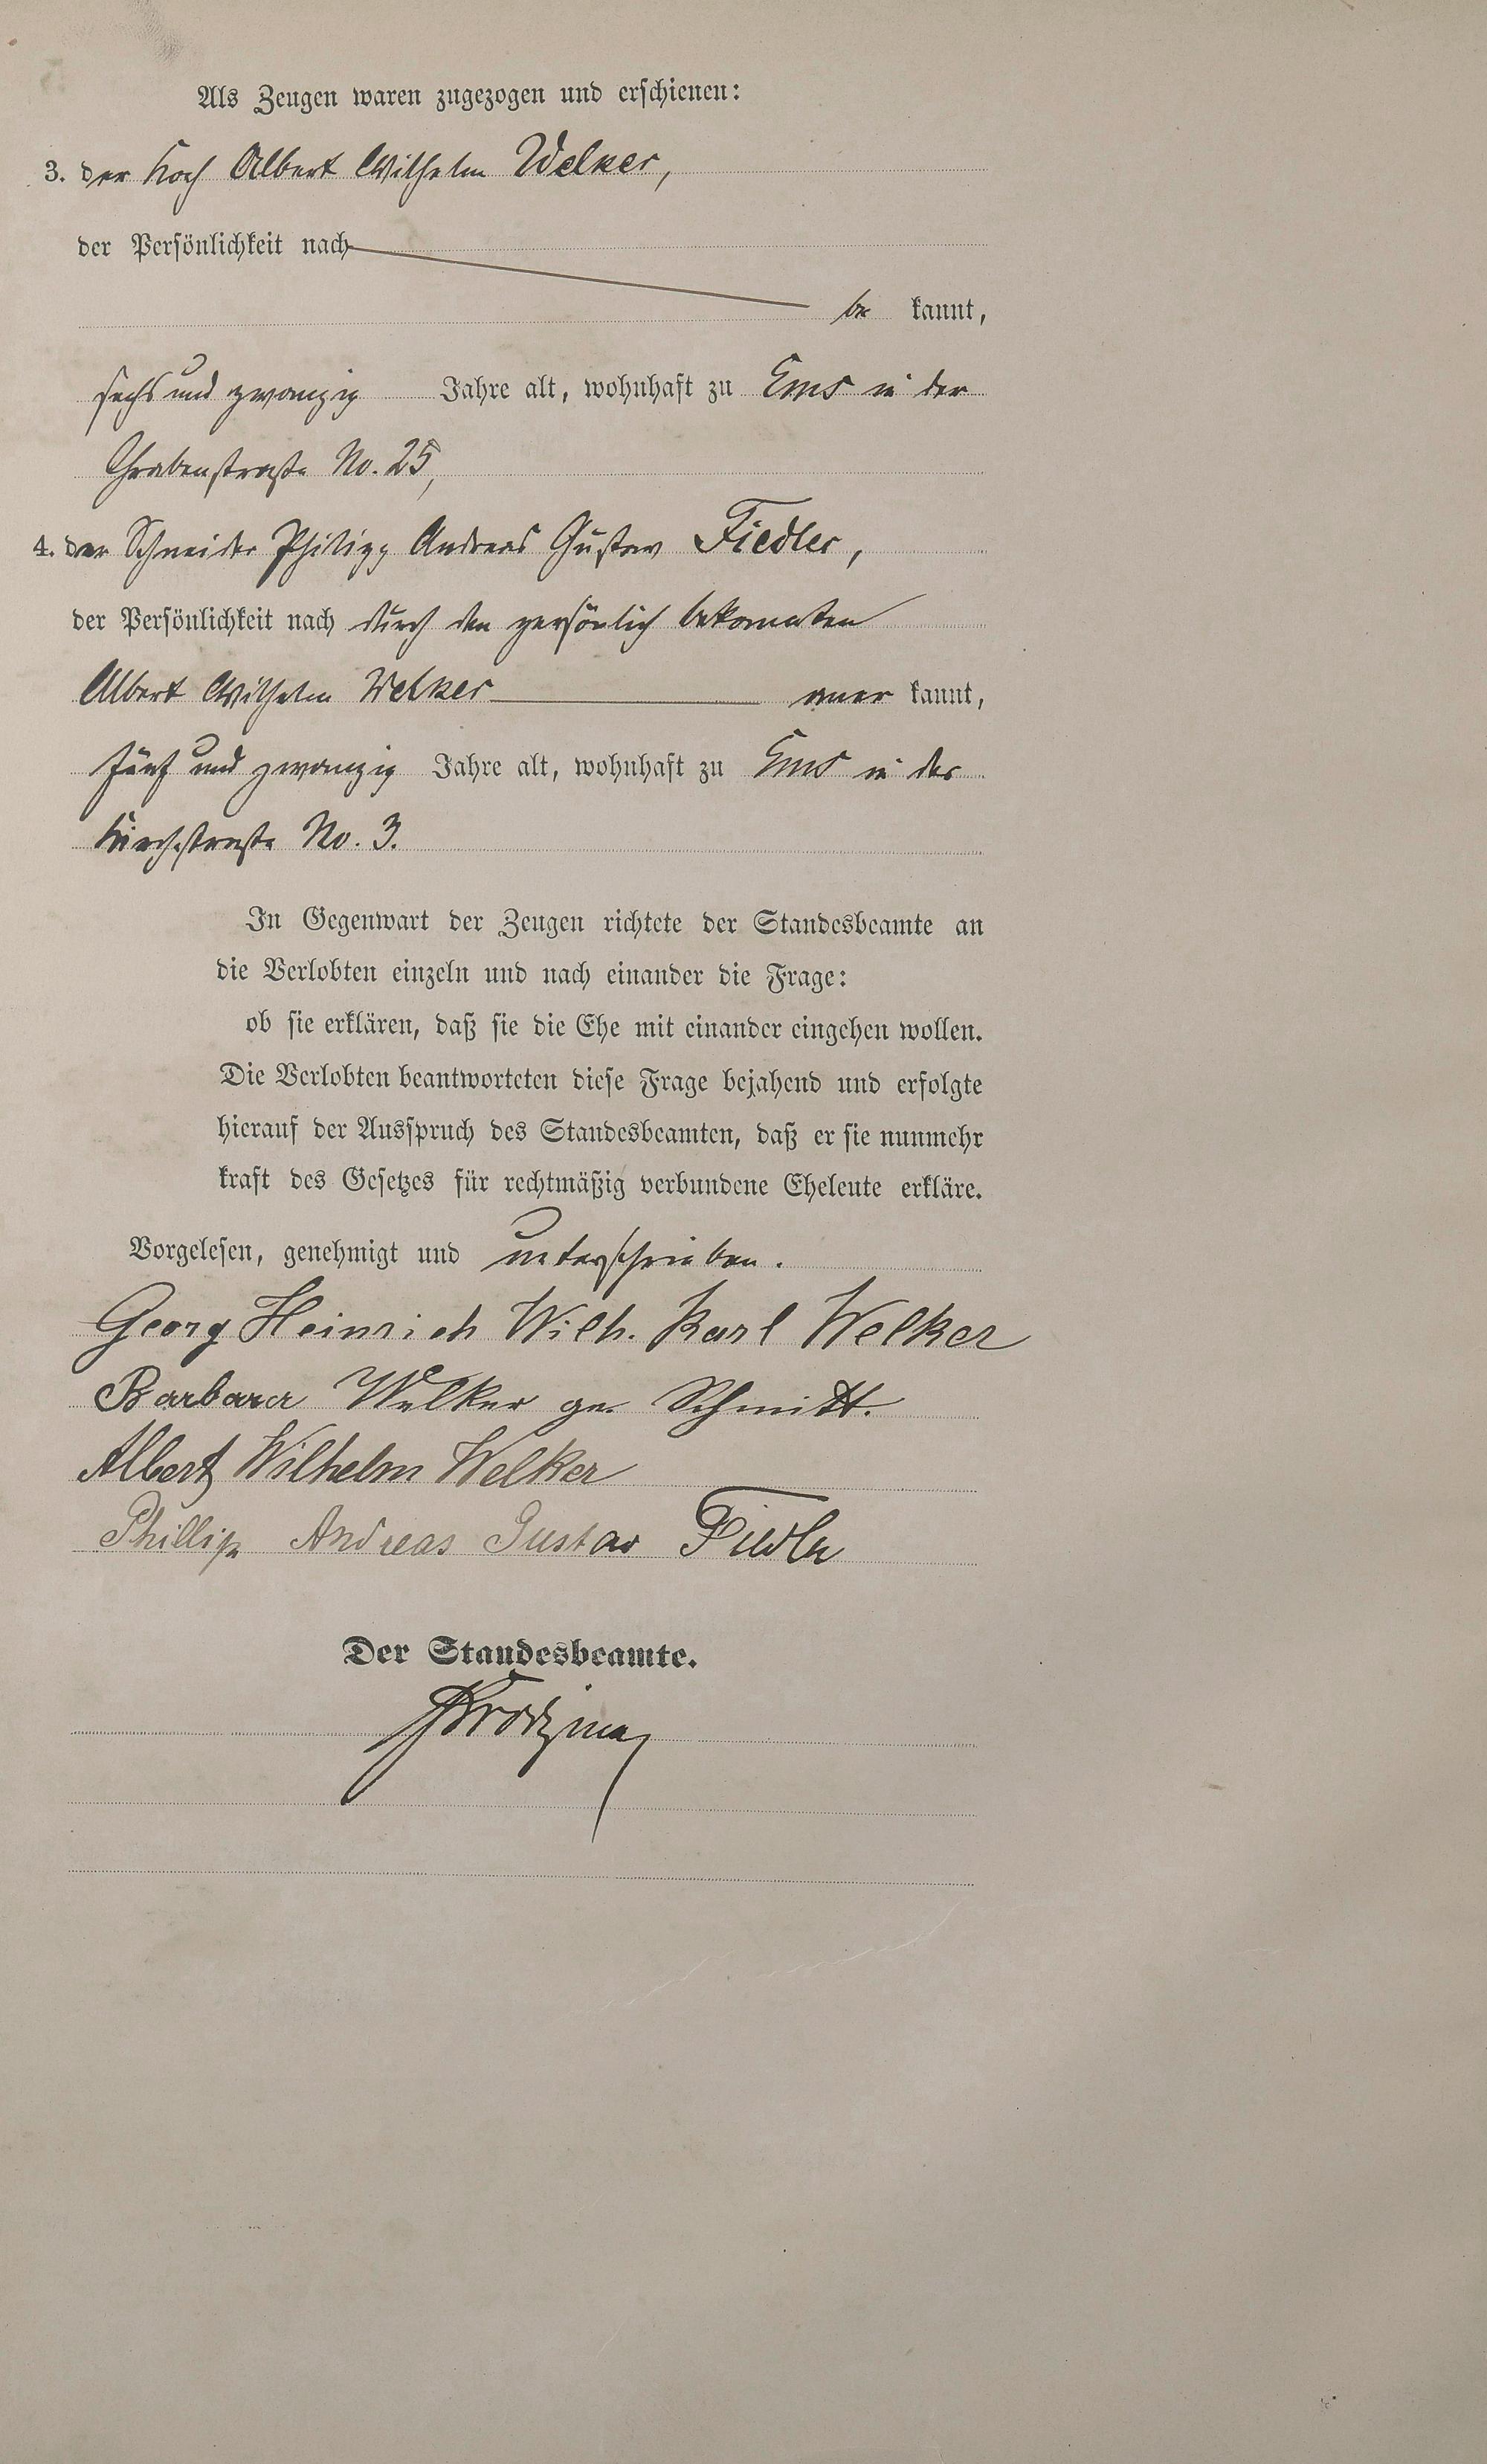 Als Zeugen waren zugezogen und erschienen:
3. der Koch Albert Wilhelm Welker,
der Persönlichkeit nach
be kannt,
sechs und zwanzig Jahre alt, wohnhaft zu Ems in der
Grabenstraße No. 25,
4. der Schneider Philipp Andreas Gustav Fiedler,
der Persönlichkeit nach durch den persönlich bekannten
Albert Wilhelm Welker aner kannt,
fünf und zwanzig Jahre alt, wohnhaft zu Ems in der
Kirchstraße No. 3.
In Gegenwart der Zeugen richtete der Standesbeamte an
die Verlobten einzeln und nach einander die Frage:
ob sie erklären, daß sie die Ehe mit einander eingehen wollen.
Die Verlobten beantworteten diese Frage bejahend und erfolgte
hierauf der Ausspruch des Standesbeamten, daß er sie nunmehr
kraft des Gesetzes für rechtmäßig verbundene Eheleute erkläre.
Vorgelesen, genehmigt und unterschrieben.
Georg Heinrich Wilh. Karl Welker
Barbara Welker ge. Schmitt.
Albert Wilhelm Welker
Phillip Andreas Gustav Fiedler
Der Standesbeamte.